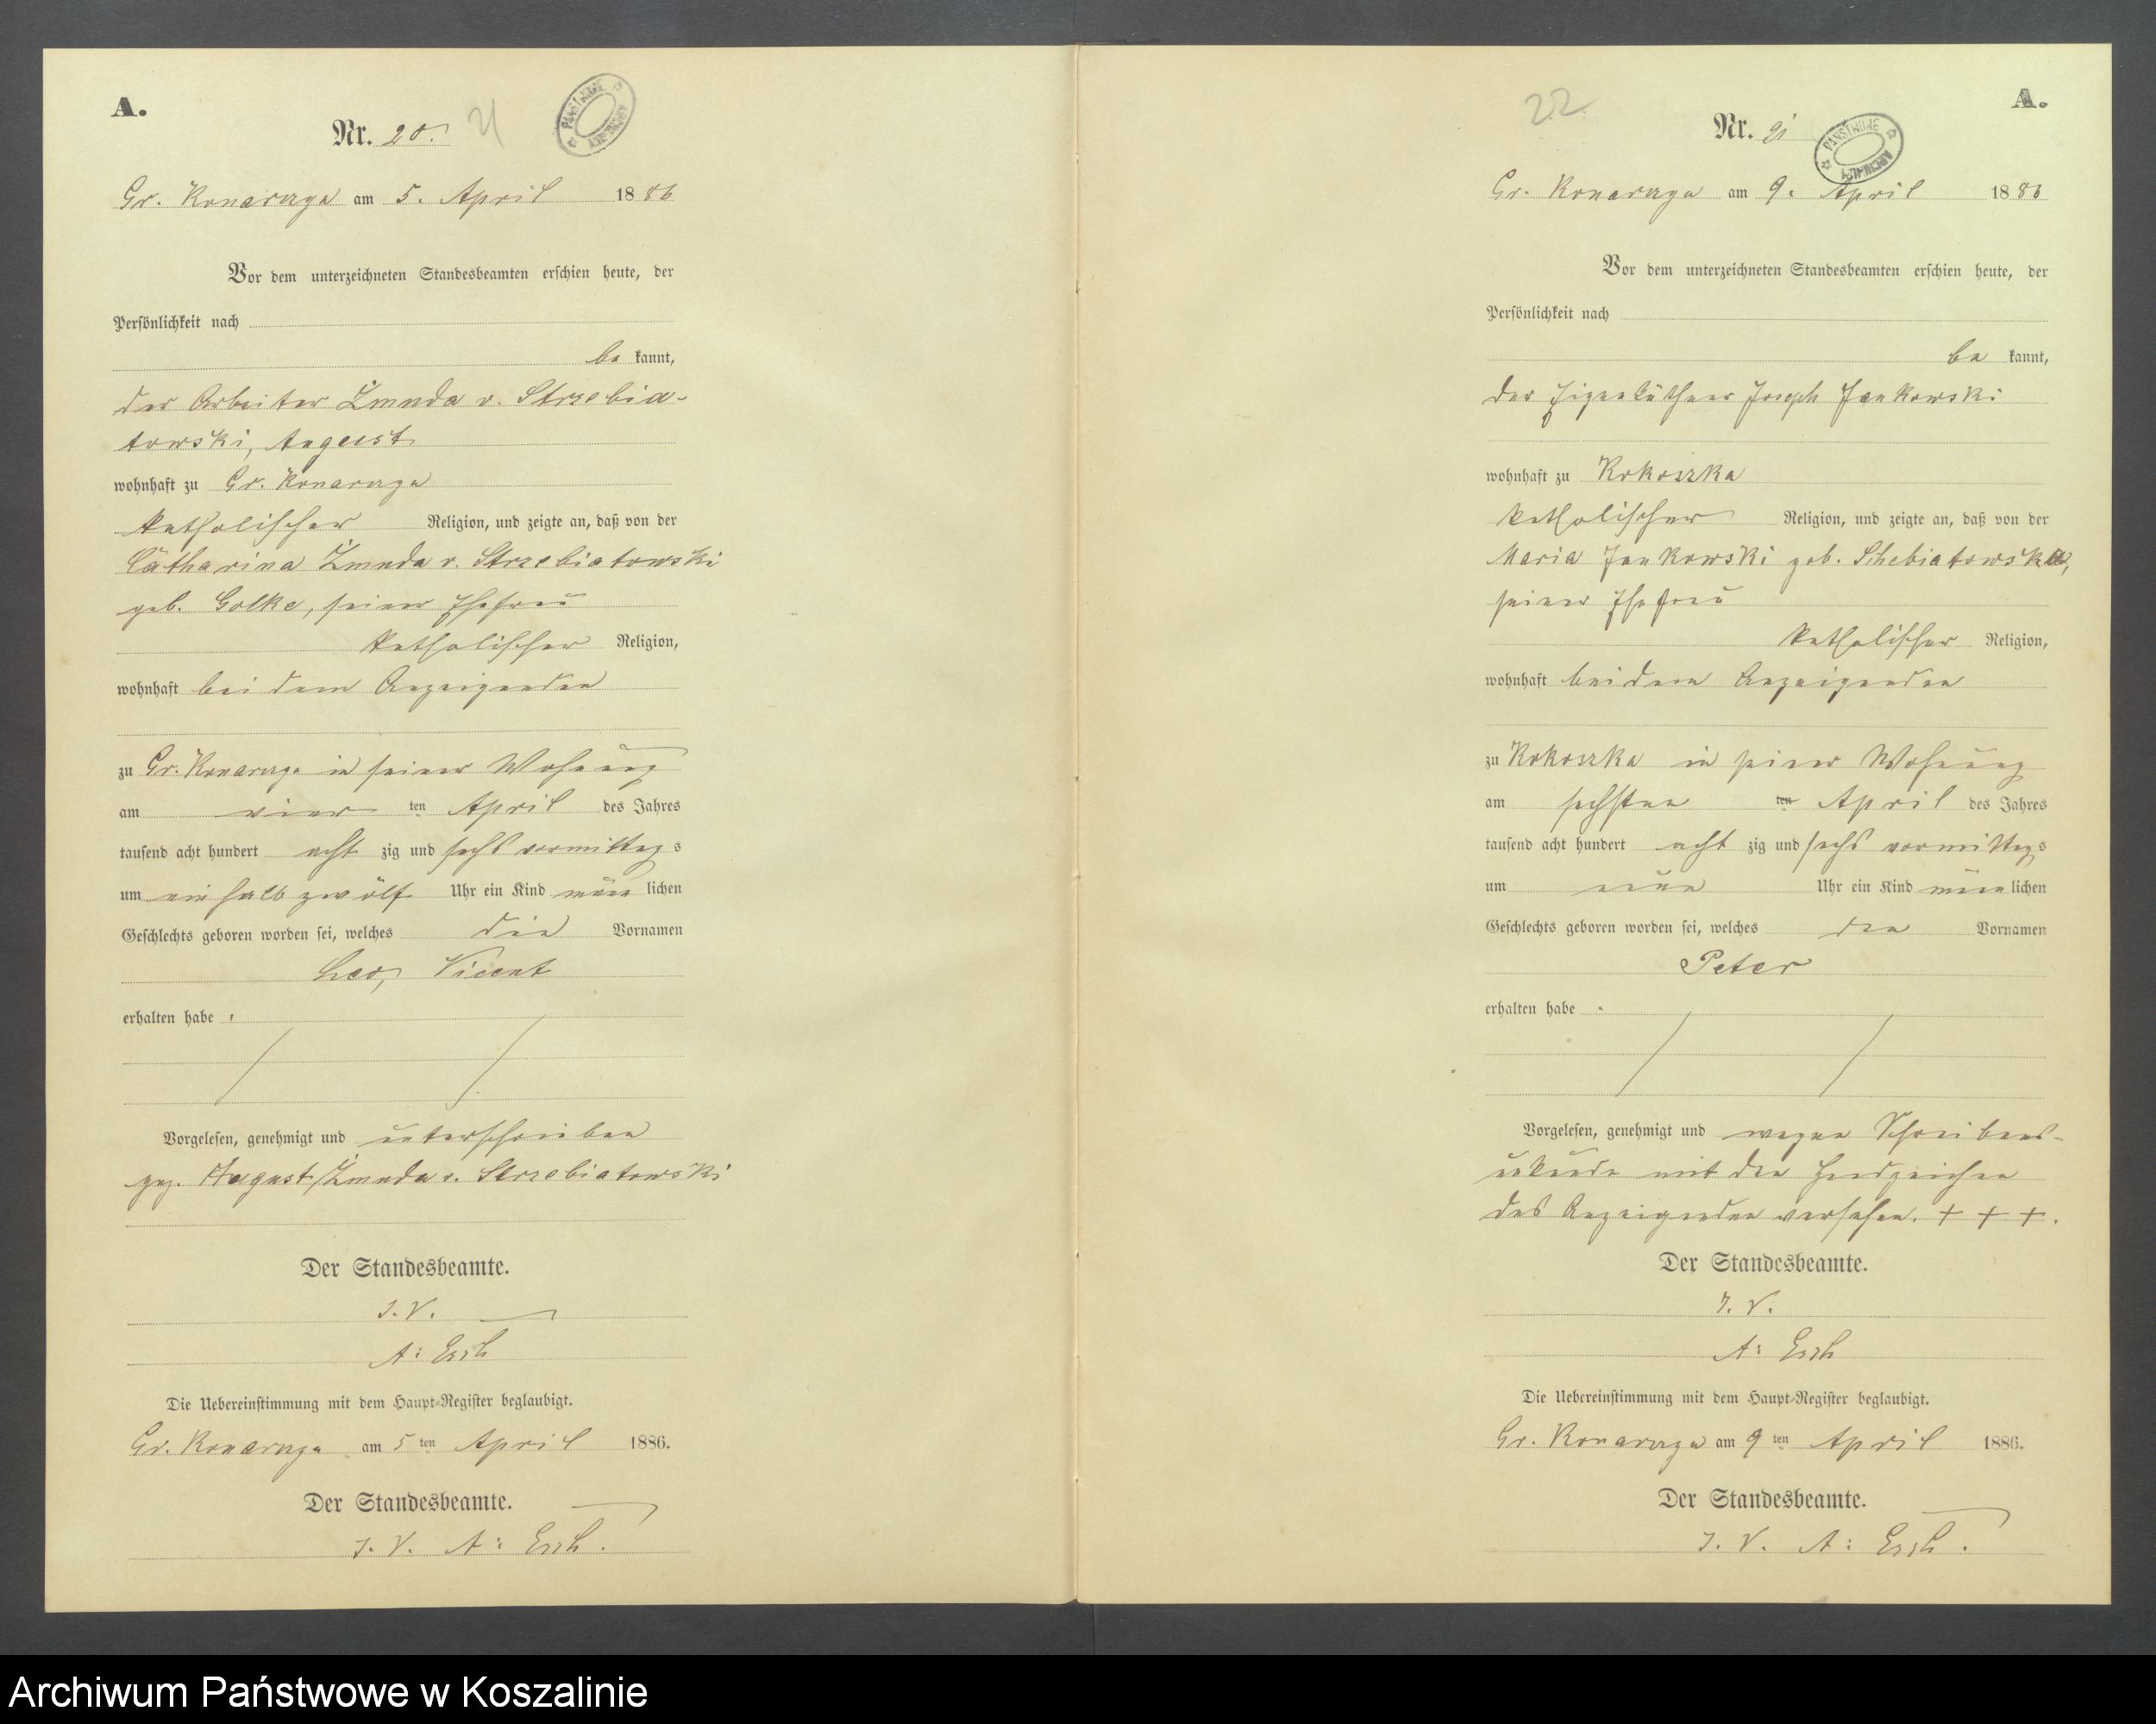 A.
Nr. 20.
21
PAŃSTWOWE ARCHIWUM
Gr. Konarczyn am 5. April 1886
Vor dem unterzeichneten Standesbeamten erschien heute, der
Persönlichkeit nach
be kannt,
der Arbeiter Żmuda v. Strzebia-
towski, August
wohnhaft zu Gr. Konarczyn
katholischer Religion, und zeigte an, daß von der
Catharina Żmuda v. Strzebiatowski
geb. Golke, seiner Ehefrau
katholischer Religion,
wohnhaft bei dem Anzeigenden
zu Gr. Konarczyn in seiner Wohnung
am vier ten April des Jahres
tausend acht hundert acht zig und sechs vormittag s
um ein halb zwölf Uhr ein Kind männ lichen
Geschlechts geboren worden sei, welches die Vornamen
Leo, Vicent
erhalten habe.
Vorgelesen, genehmigt und unterschrieben
gez. August Żmuda v. Strzebiatowski
Der Standesbeamte.
I. V.
A: Esch
Die Uebereinstimmung mit dem Haupt-Register beglaubigt.
Gr. Konarczyn am 5 ten April 1886.
Der Standesbeamte.
I. V. A: Esch.
22
A.
Nr. 21
PAŃSTWOWE ARCHIWUM
Gr. Konarczyn am 9. April 1886
Vor dem unterzeichneten Standesbeamten erschien heute, der
Persönlichkeit nach
be kannt,
der Eigenkäthner Joseph Jankowski
wohnhaft zu Kokoszka
katholischer Religion, und zeigte an, daß von der
Maria Jankowski geb. Schebiatowska,
seiner Ehefrau
katholischer Religion,
wohnhaft bei dem Anzeigenden
zu Kokoszka in seiner Wohnung
am sechsten ten April des Jahres
tausend acht hundert acht zig und sechs vormittags
um neun Uhr ein Kind männ lichen
Geschlechts geboren worden sei, welches den Vornamen
Peter
erhalten habe.
Vorgelesen, genehmigt und wegen Schreibens-
unkunde mit den Handzeichen
des Anzeigenden versehen. + + +.
Der Standesbeamte.
I. V.
A: Esch
Die Uebereinstimmung mit dem Haupt-Register beglaubigt.
Gr. Konarczyn am 9 ten April 1886.
Der Standesbeamte.
I. V. A: Esch.
Archiwum Państwowe w Koszalinie